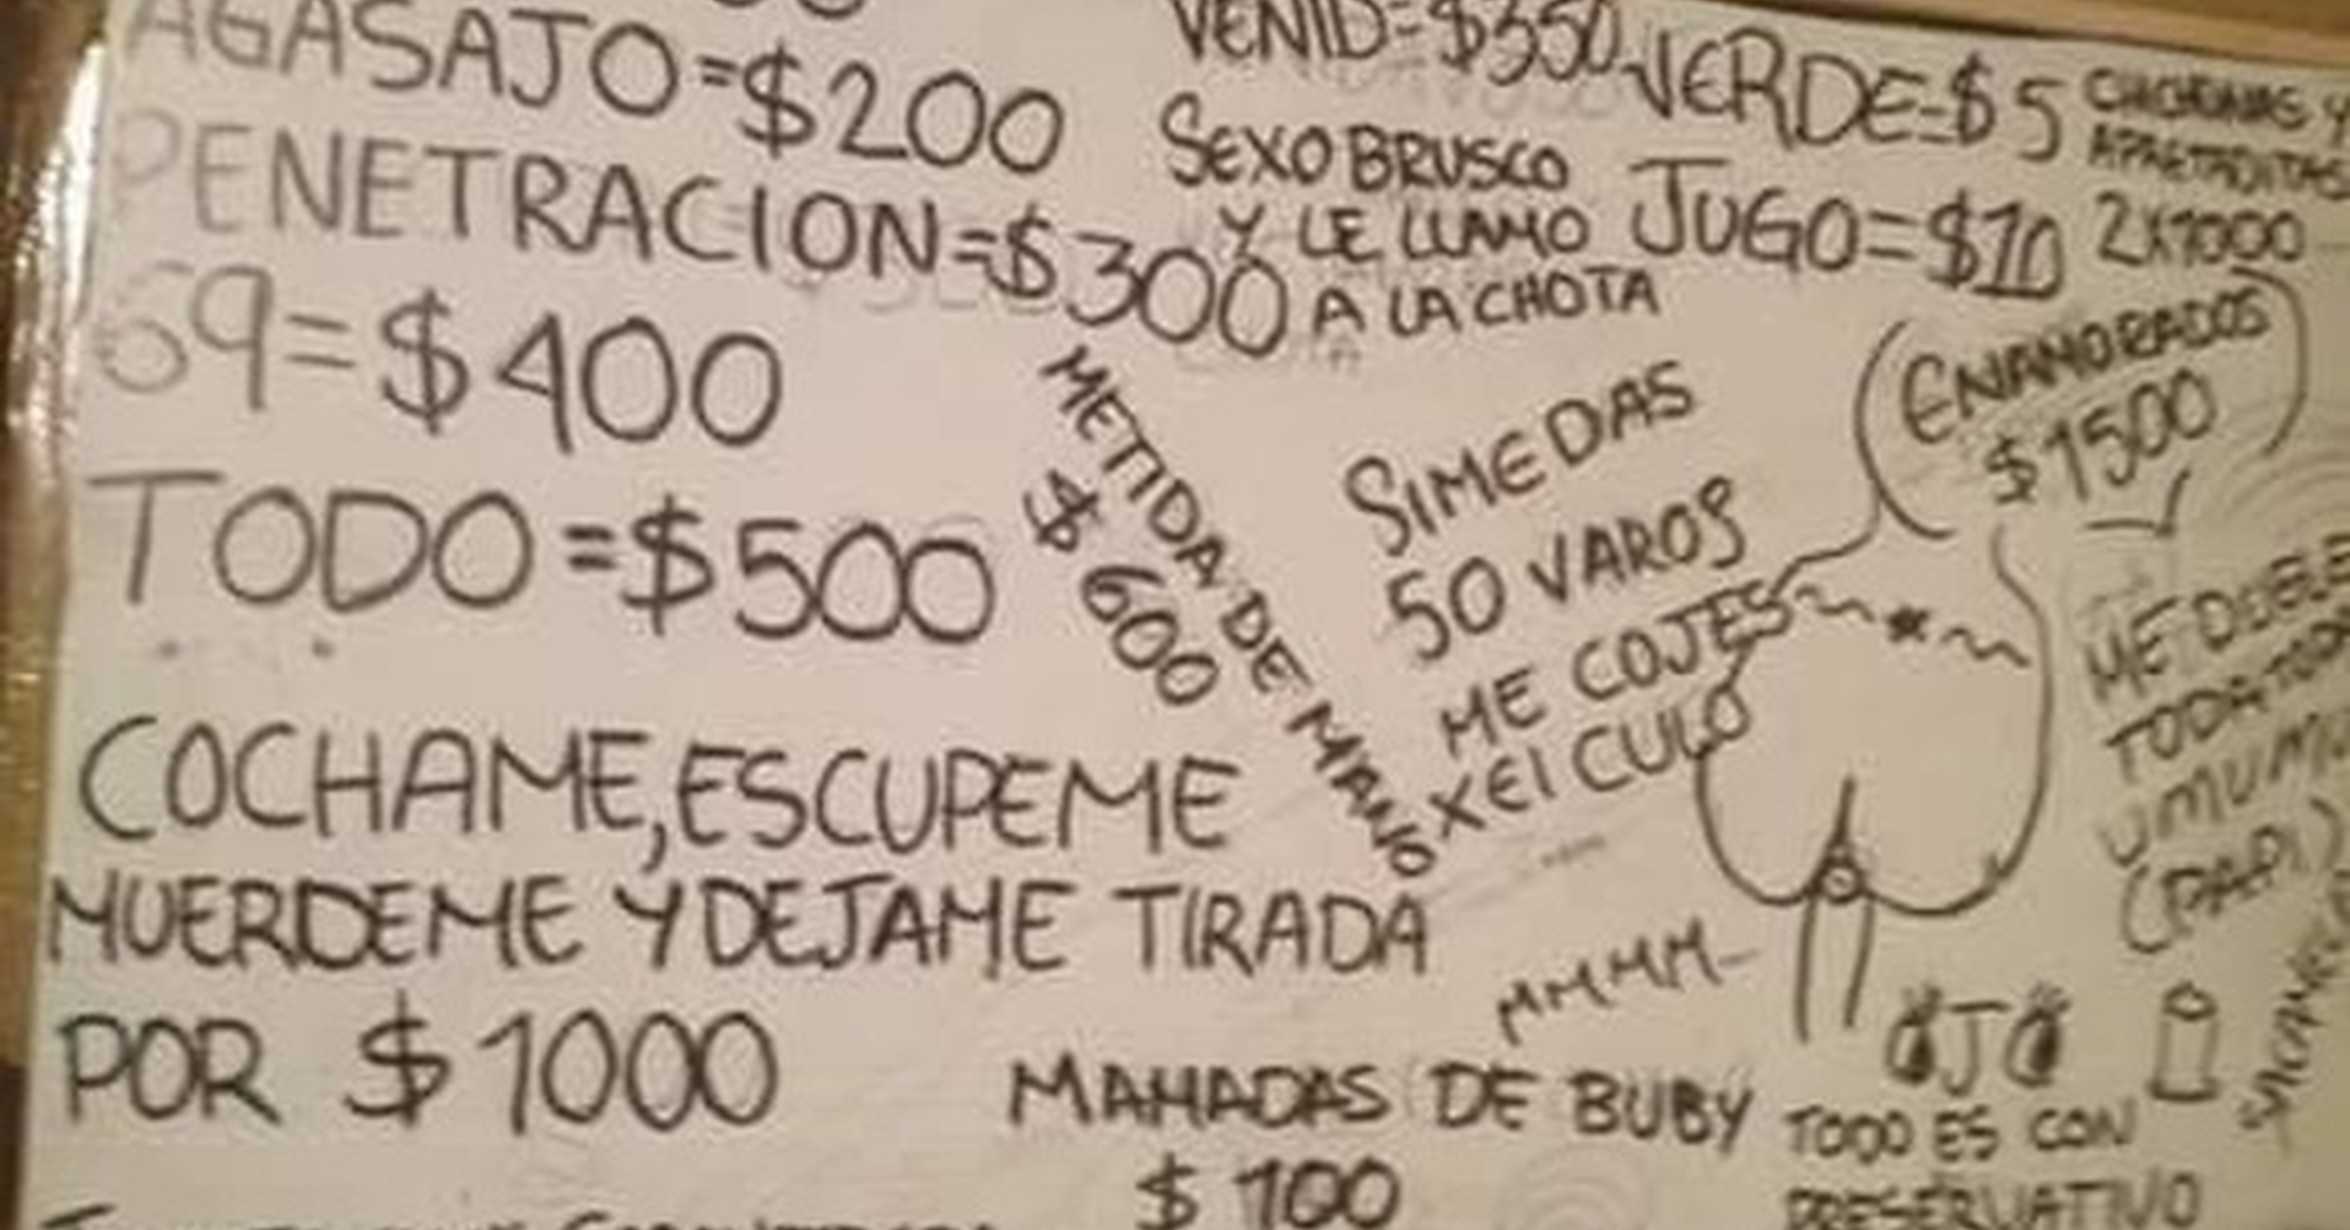 AGASAJO=$200
PENETRACION=$300
69=$400
TODO=$500
COCHAME,ESCUPEME
MUERDEME Y DEJAME TIRADA
POR $1000
METIDA DE MANO
$600
VENID=$350
SEXO BRUSCO
Y LE LLAMO
A LA CHOTA
VERDE=$5
JUGO=$10
2X1000
ENAMORADOS
$1500
SI ME DAS
50 VAROS
ME COJES
XEL CULO
ME DUELE
TODA TODA
(PAPI)
MMMM
MAMADAS DE BUBY
$100
OJO
TODO ES CON
PRESERVATIVO